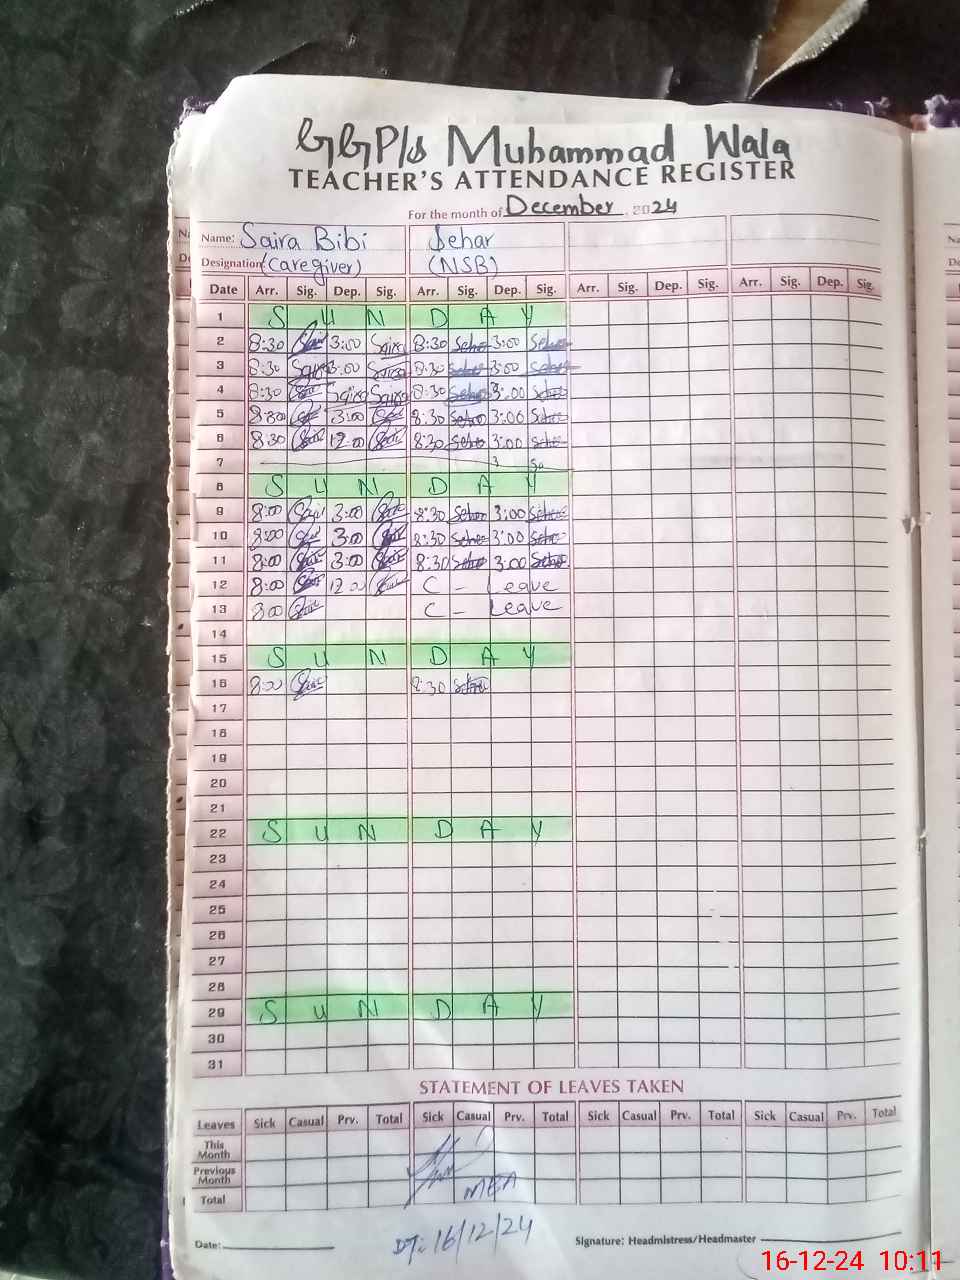 GGP/s Muhammad Wala
TEACHER'S ATTENDANCE REGISTER
For the month of December, 2024
Name: Saira Bibi Sehar
Designation (Caregiver) (NSB)
Date Arr. Sig. Dep. Sig. Arr. Sig. Dep. Sig. Arr. Sig. Dep. Sig. Arr. Sig. Dep. Sig.
1 S U N D A Y
2 8:30 3:00 Saira 8:30 Sehar 3:00 Sehar
3 8:30 Saira 3:00 Saira 8:30 Sehar 3:00 Sehar
4 8:30 Saira Saira 8:30 Sehar 3:00 Sehar
5 8:30 3:00 8:30 Sehar 3:00 Sehar
6 8:30 12:00 8:30 Sehar 3:00 Sehar
7
8 S U N D A Y
9 8:00 3:00 8:30 Sehar 3:00 Sehar
10 8:00 3:00 8:30 Sehar 3:00 Sehar
11 8:00 3:00 8:30 Sehar 3:00 Sehar
12 8:00 12:00 C - Leave
13 8:00 C - Leave
14
15 S U N D A Y
16 8:00 8:30 Sehar
17
18
19
20
21
22 S U N D A Y
23
24
25
26
27
28
29 S U N D A Y
30
31
STATEMENT OF LEAVES TAKEN
Leaves Sick Casual Prv. Total Sick Casual Prv. Total Sick Casual Prv. Total Sick Casual Prv. Total
This Month
Previous Month
Total MEA
Date: DT: 16/12/24 Signature: Headmistress/Headmaster
16-12-24 10:11